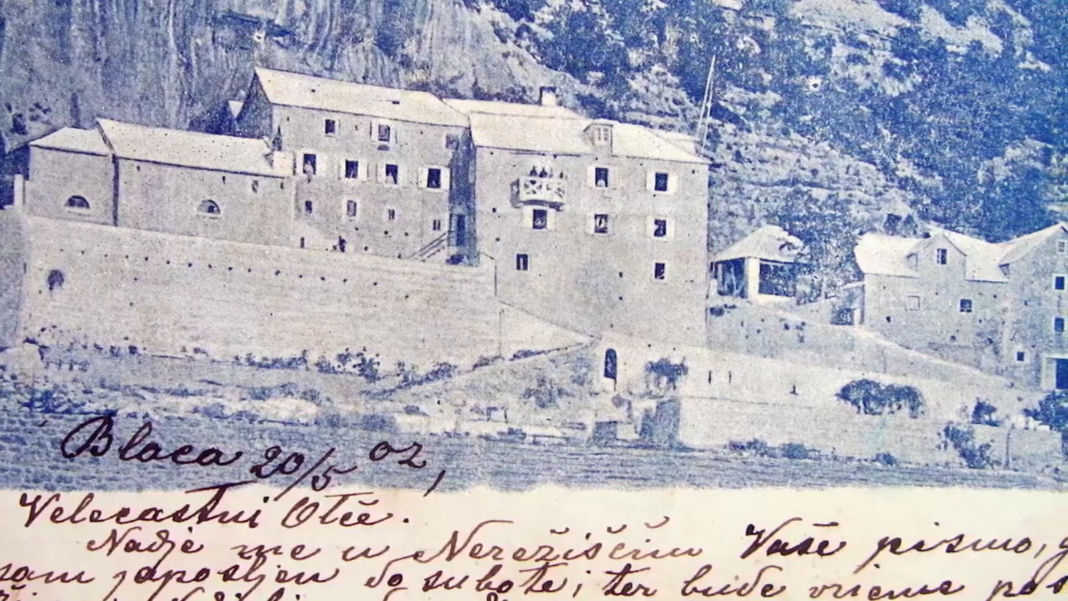 Blaca 20/5 02,
Velecastni Otče.
Nadje me u Nerežišćim Vaše pismo,
sam zaposljen do subote; ter bude vrieme